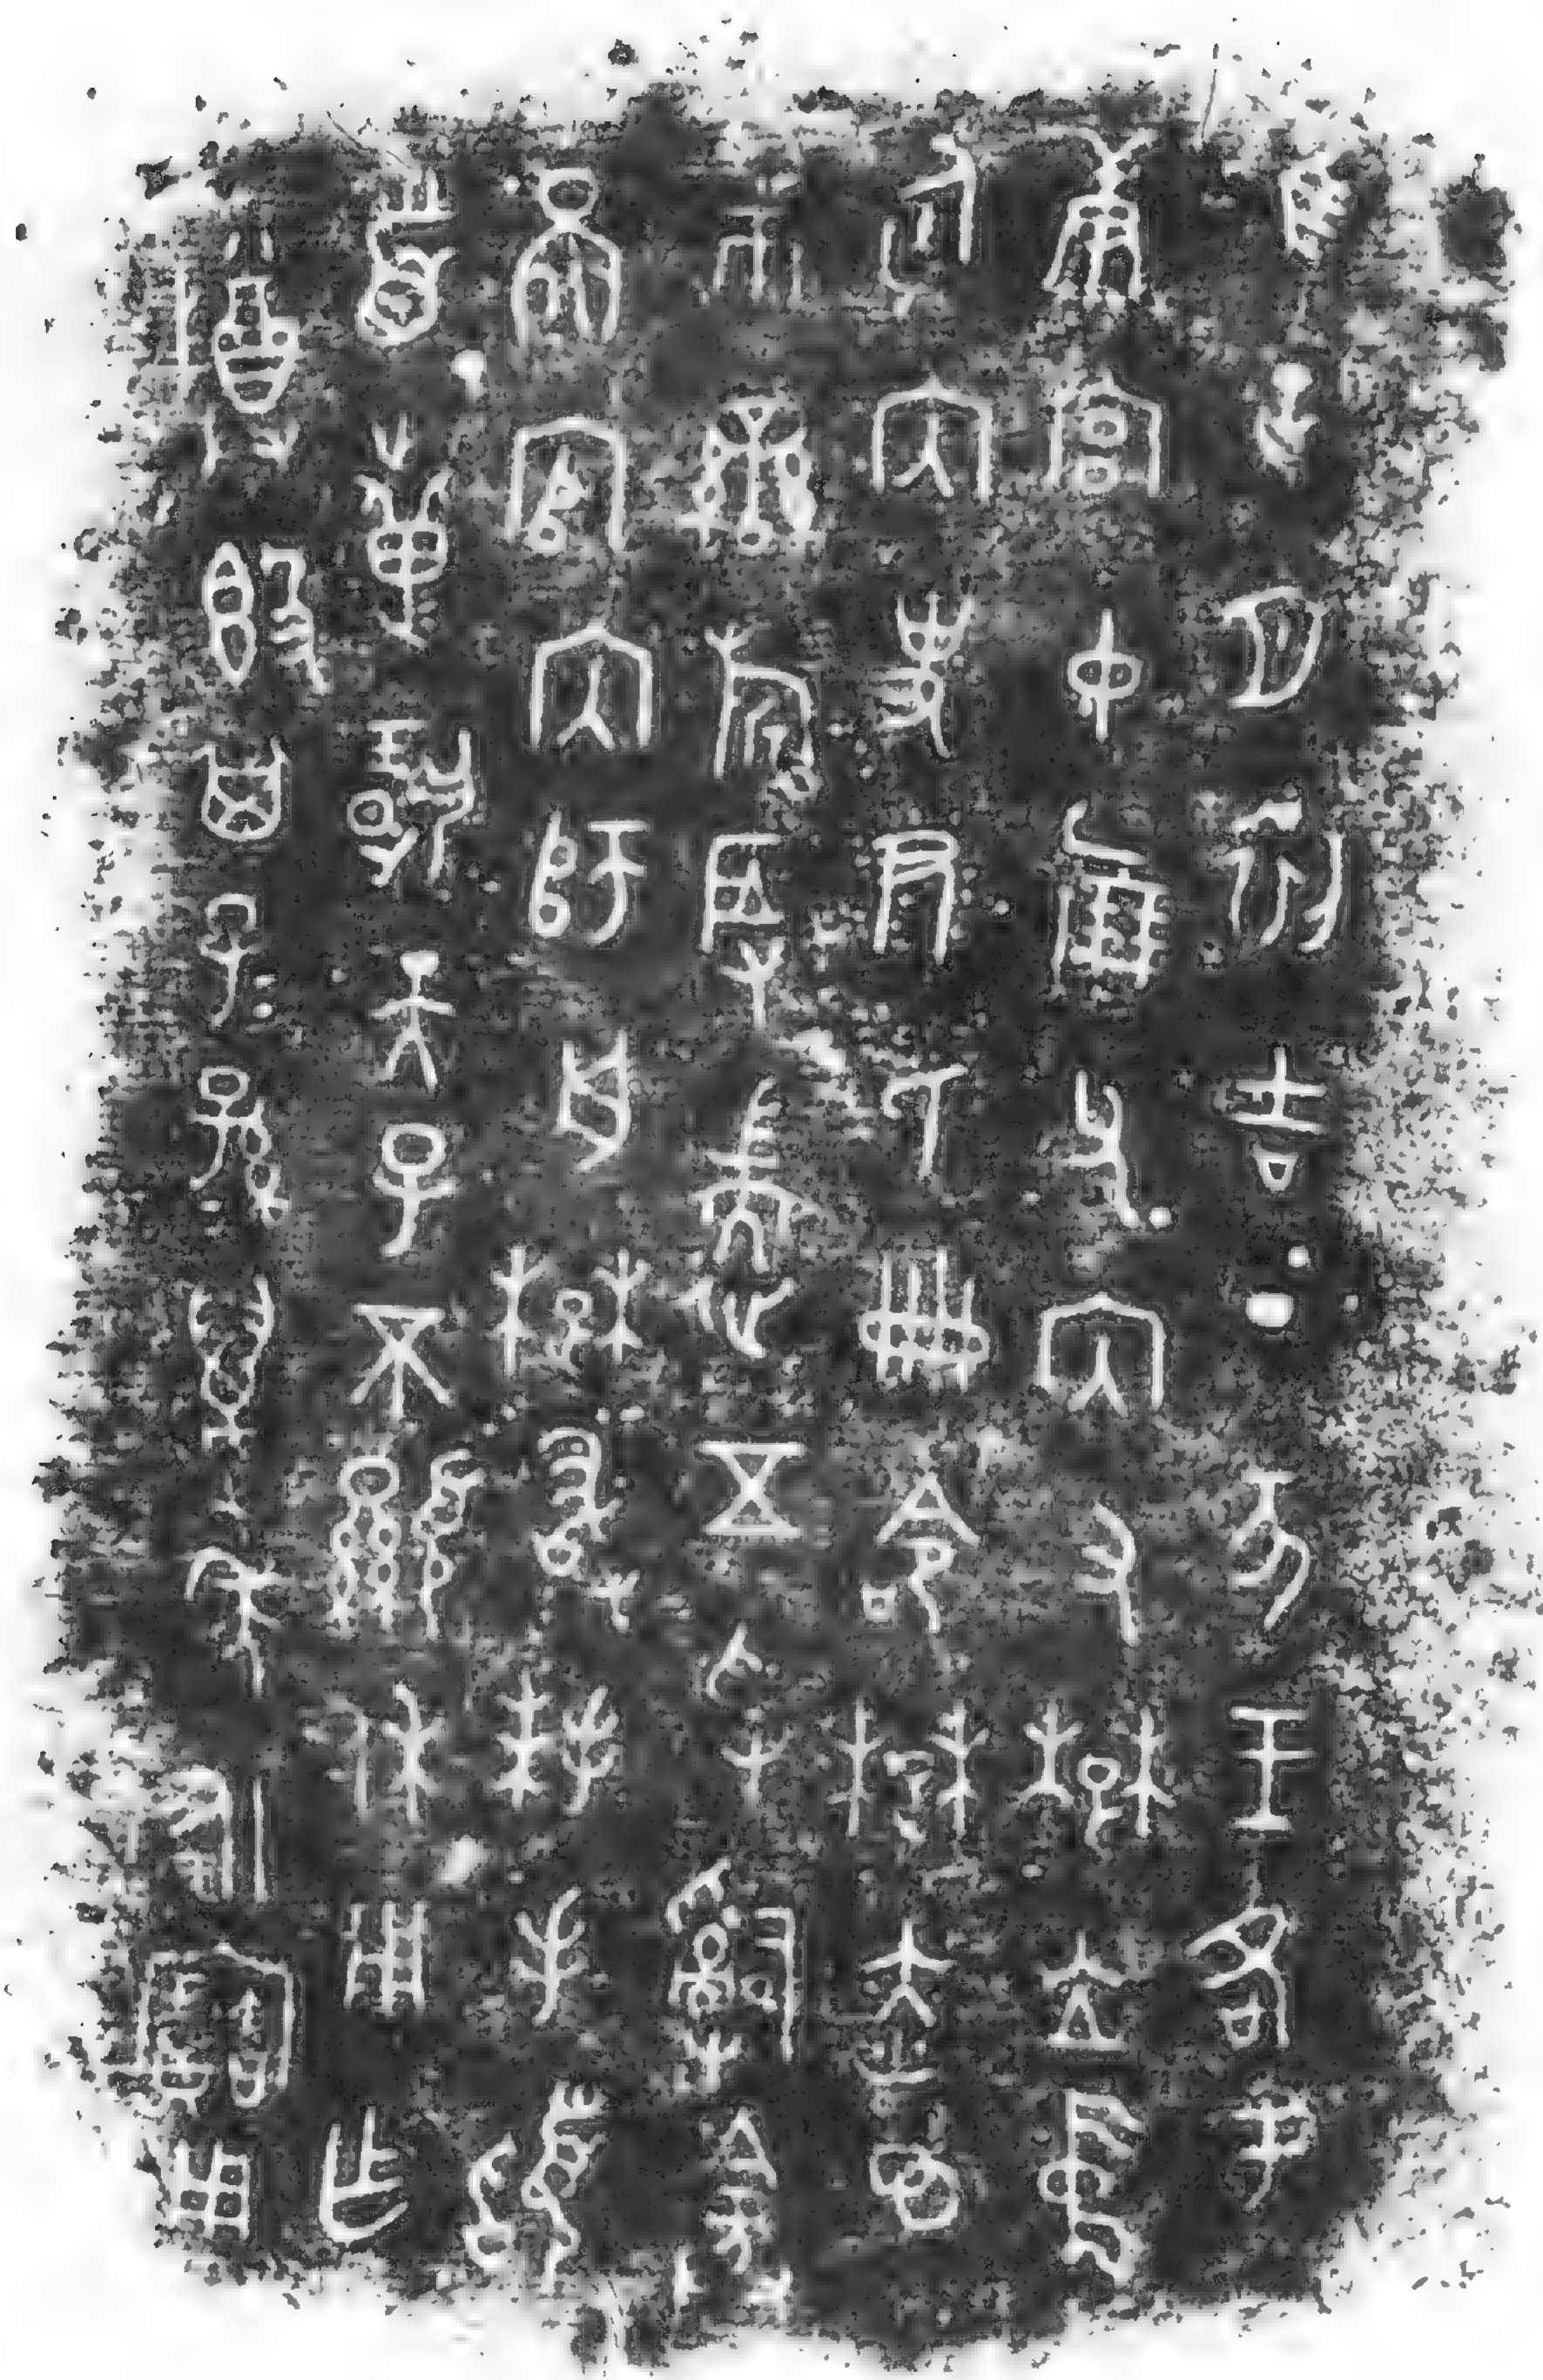 隹正月初吉丁亥王各于
康宮中倗父內又楚立中
廷內史尹氏冊命楚赤
市䜌旂取遄五寽𤔲
啚官內師舟楚敢拜手𩒨
首疐揚天子不顯休用乍
尊𣪘其子=孫=萬年永寶用